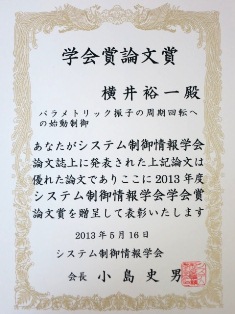 学会賞論文賞
横井裕一殿
パラメトリック振子の周期回転へ
の始動制御
あなたがシステム制御情報学会
論文誌上に発表された上記論文は
優れた論文でありここに2013年度
システム制御情報学会学会賞
論文賞を贈呈して表彰いたします
2013年5月16日
システム制御情報学会
会長 小島史男